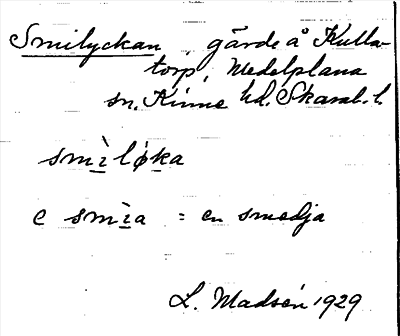 Smilyckan, gärde å Kulla-
torp, Medelplana
sn, Kinne hd. Skarab. l.
smìløka
e smìa = en smedja
L. Madsén 1929